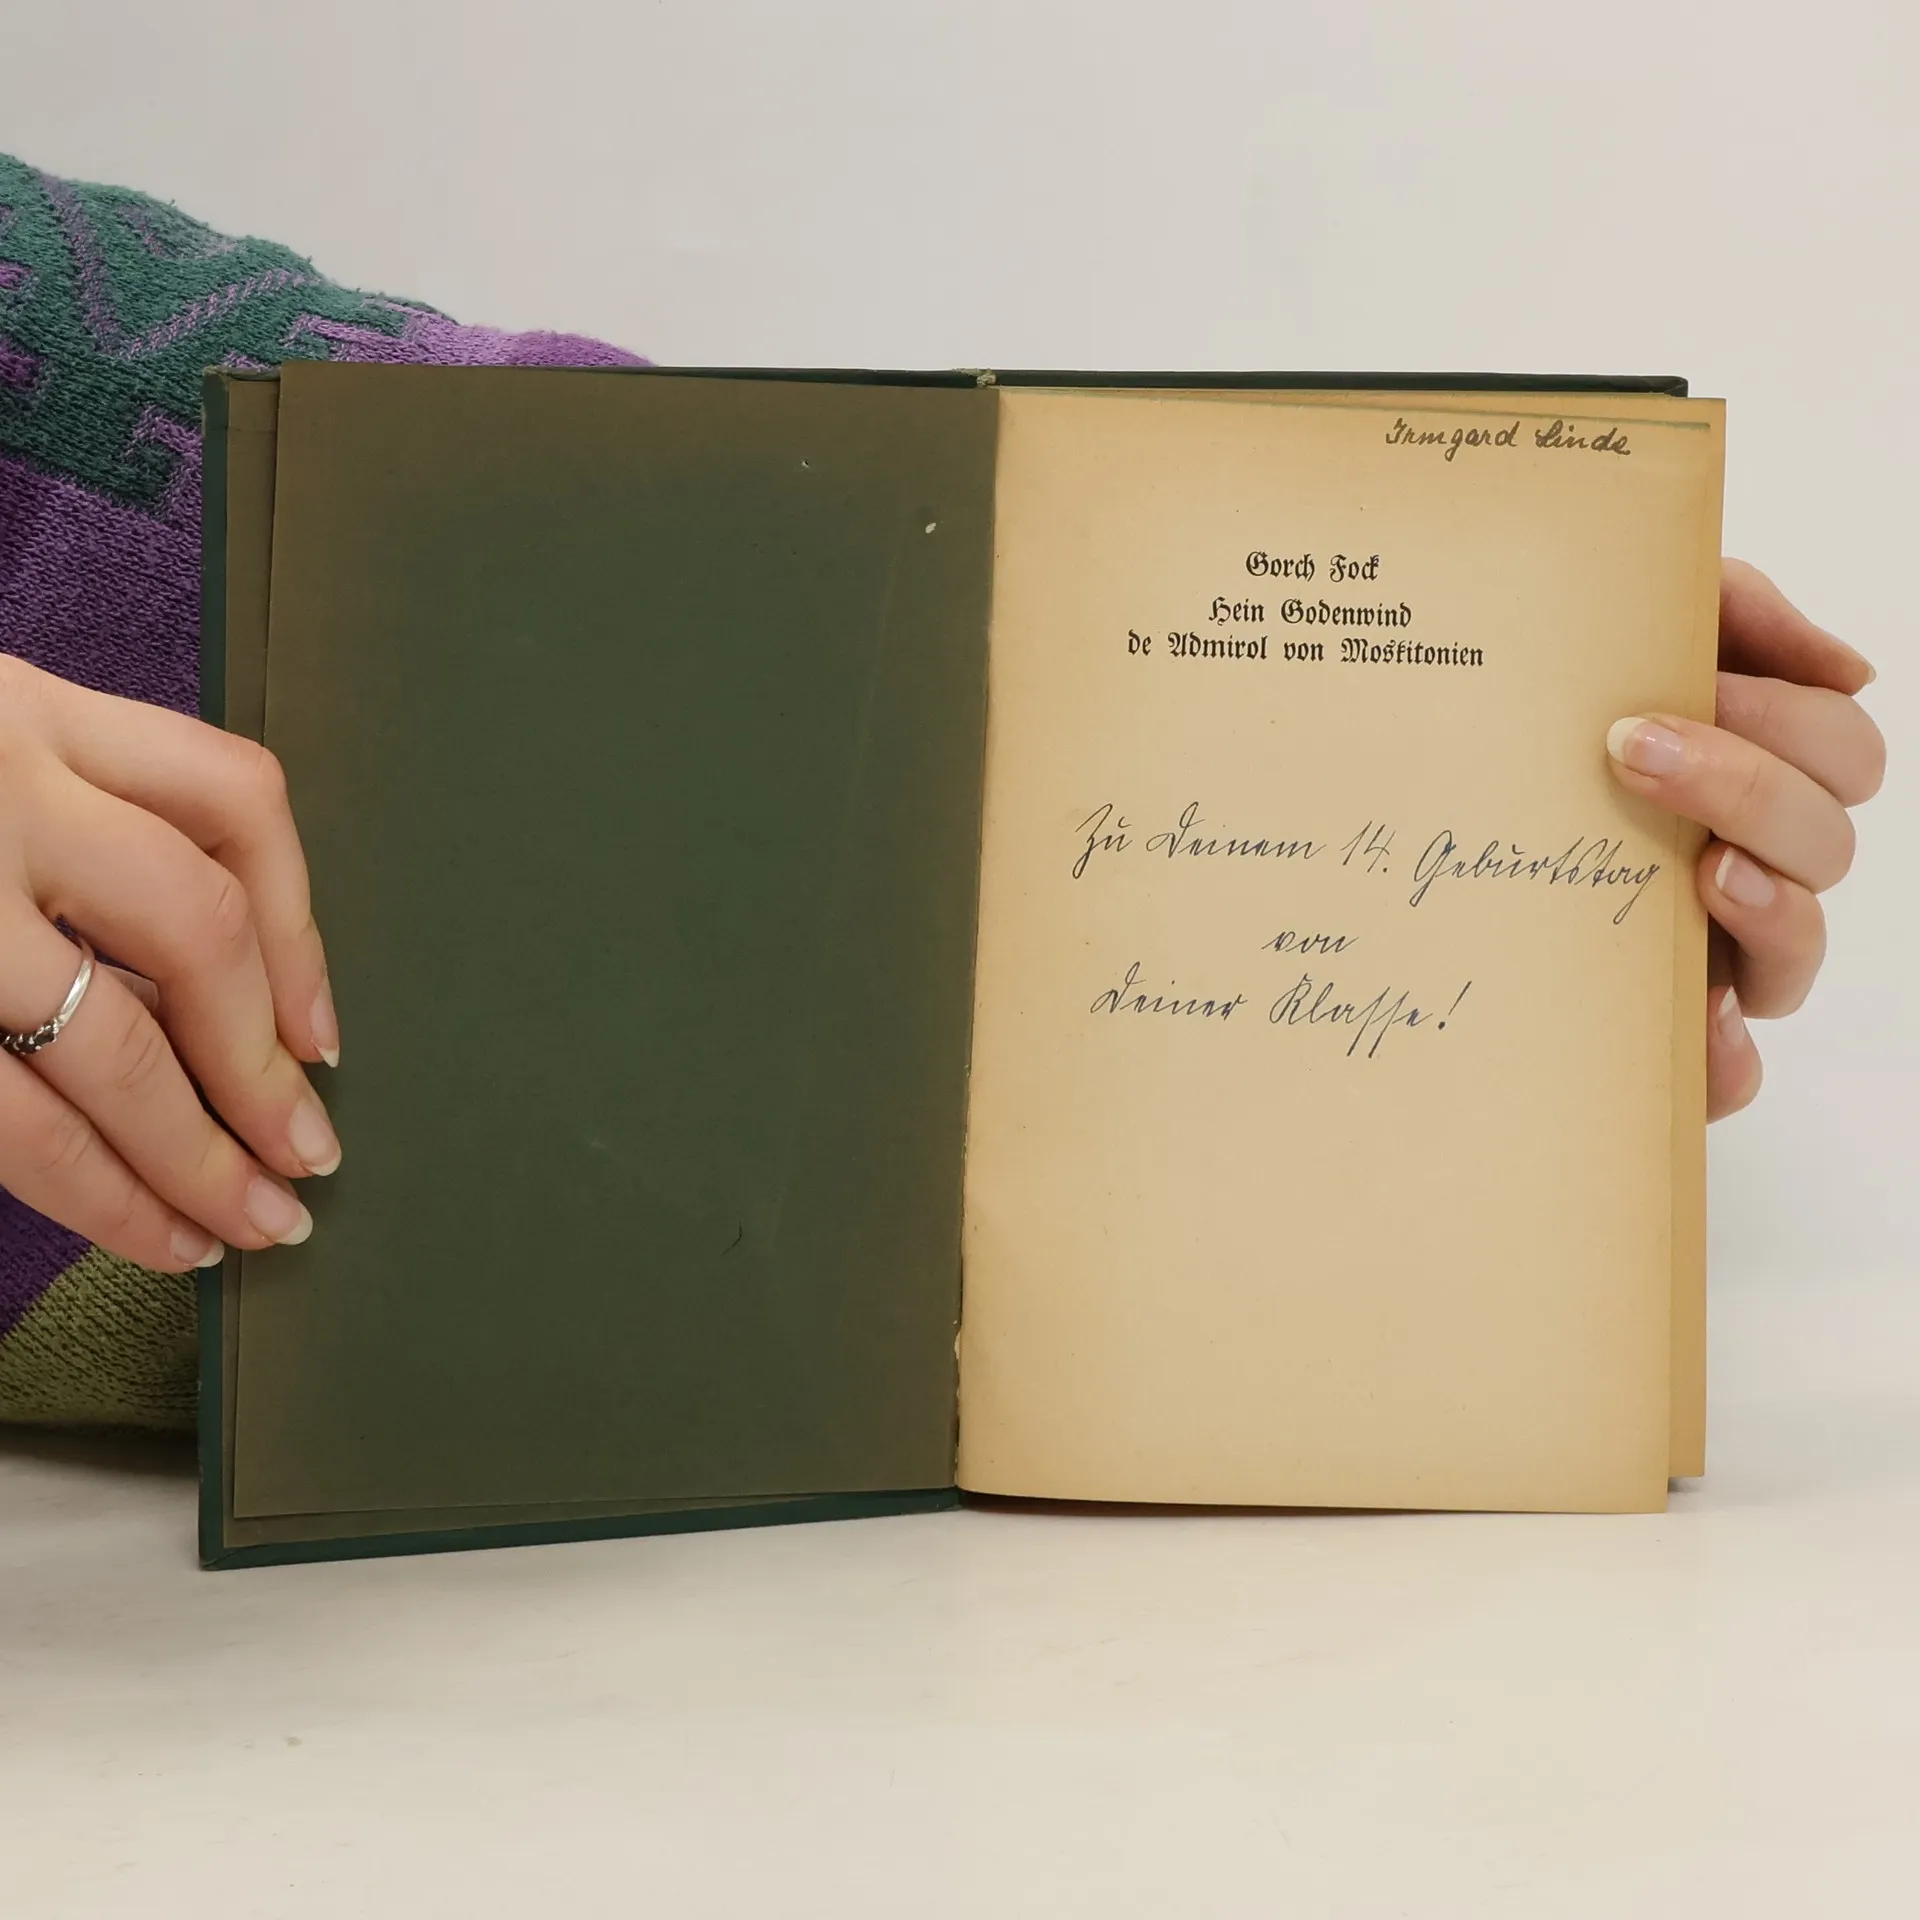 Irmgard Linde
Gorch Fock
Hein Godenwind
de Admirol von Moskitonien
Zu Deinem 14. Geburtstag
von
Deiner Klasse!